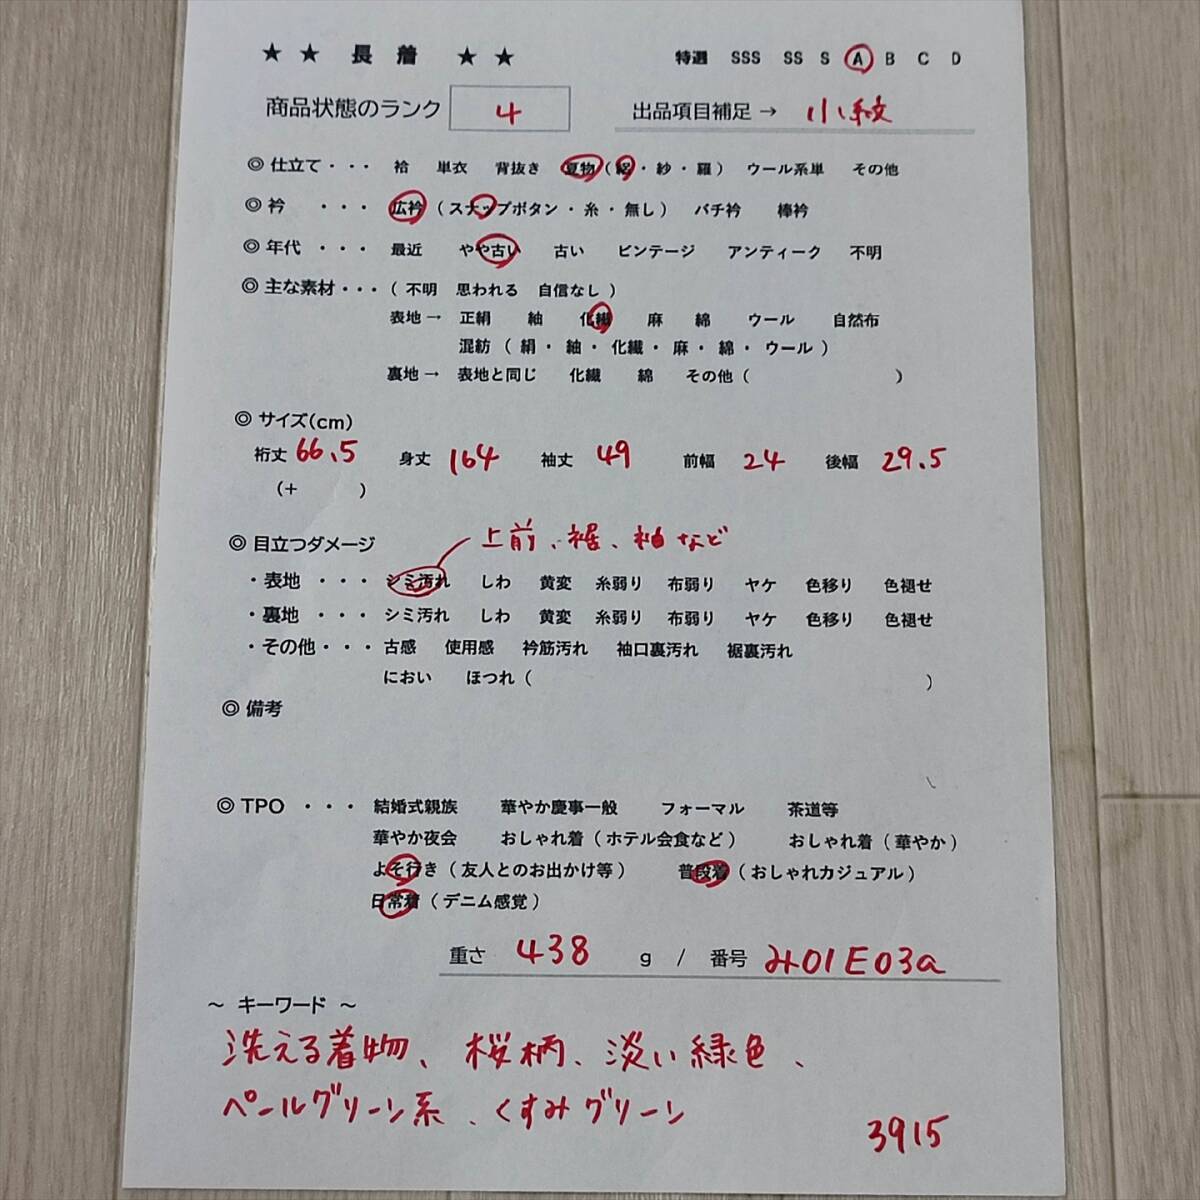 ★ ★ 長 着 ★ ★ 特選 SSS SS S A B C D
商品状態のランク 4 出品項目補足 → 小紋
◎ 仕立て・・・ 袷 単衣 背抜き 夏物 ( 絽・紗・羅 ) ウール系単 その他
◎ 衿 ・・・ 広衿 ( スナップボタン・糸・無し ) バチ衿 棒衿
◎ 年代 ・・・ 最近 やや古い 古い ビンテージ アンティーク 不明
◎ 主な素材・・・ ( 不明 思われる 自信なし )
表地 → 正絹 紬 化繊 麻 綿 ウール 自然布
混紡 ( 絹・紬・化繊・麻・綿・ウール )
裏地 → 表地と同じ 化繊 綿 その他 ( )
◎ サイズ(cm)
裄丈 66.5 身丈 164 袖丈 49 前幅 24 後幅 29.5
(+ )
◎ 目立つダメージ 上前、裾、袖など
・表地 ・・・ シミ汚れ しわ 黄変 糸弱り 布弱り ヤケ 色移り 色褪せ
・裏地 ・・・ シミ汚れ しわ 黄変 糸弱り 布弱り ヤケ 色移り 色褪せ
・その他・・・ 古感 使用感 衿筋汚れ 袖口裏汚れ 裾裏汚れ
におい ほつれ ( )
◎ 備考
◎ TPO ・・・ 結婚式親族 華やか慶事一般 フォーマル 茶道等
華やか夜会 おしゃれ着 ( ホテル会食など ) おしゃれ着 ( 華やか )
よそ行き ( 友人とのお出かけ等 ) 普段着 ( おしゃれカジュアル )
日常着 ( デニム感覚 )
重さ 438 g / 番号 み01E03a
～ キーワード ～
洗える着物、桜柄、淡い緑色、
ペールグリーン系、くすみグリーン
3915